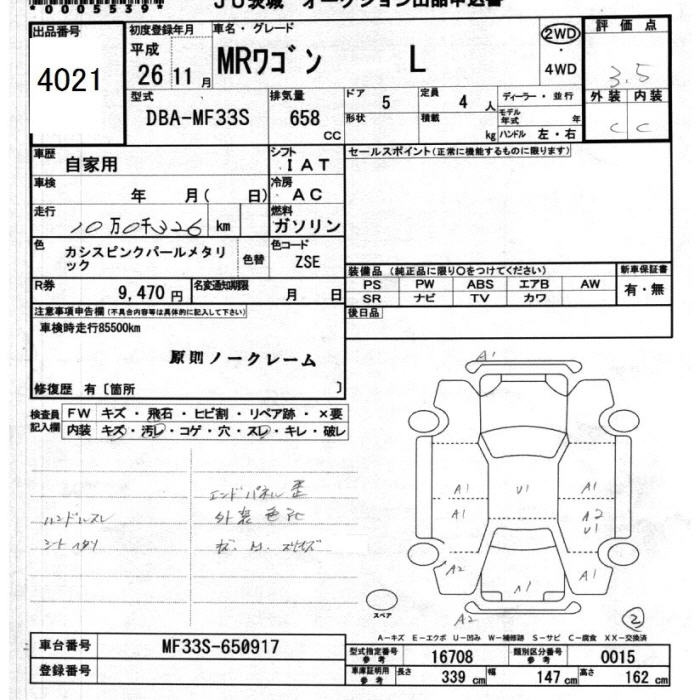 JU茨城　オークション出品申込書
出品番号
4021
初度登録年月
平成
26 11 月
車名・グレード
MRワゴン　L
2WD
・
4WD
評価点
3.5
外装 内装
C C
型式
DBA-MF33S
排気量
658
CC
ドア
5
定員
4 人
形状
積載
kg
ディーラー・並行
モデル年式
年
ハンドル 左・右
車歴
自家用
シフト
IAT
セールスポイント(正常に機能するものに限ります)
車検
年　月(　日)
冷房
AC
走行
10万0千326 km
燃料
ガソリン
色
カシスピンクパールメタリ
ック
色替
色コード
ZSE
装備品 (純正品に限り○をつけてください)
新車保証書
PS PW ABS エアB AW
有・無
SR ナビ TV カワ
R券
9,470 円
名変通知期限
月　日
後日品
注意事項申告欄 (不具合内容等は具体的に記入して下さい)
車検時走行85500km
原則ノークレーム
修復歴 有〔箇所　〕
検査員
記入欄
FW キズ・飛石・ヒビ割・リペア跡・×要
内装 キズ・汚レ・コゲ・穴・スレ・キレ・破レ
エンドパネル歪
ハンドルスレ
外装色アセ
A1
A1 U1 A1
A1 A2
U1
A2 A1 A1
A2
スペア
2
A-キズ E-エクボ U-凹み W-補修跡 S-サビ C-腐食 XX-交換済
車台番号
MF33S-650917
登録番号
型式指定番号
参考
16708
類別区分番号
参考
0015
車庫証明用
参考
長さ 339 cm 幅 147 cm 高さ 162 cm